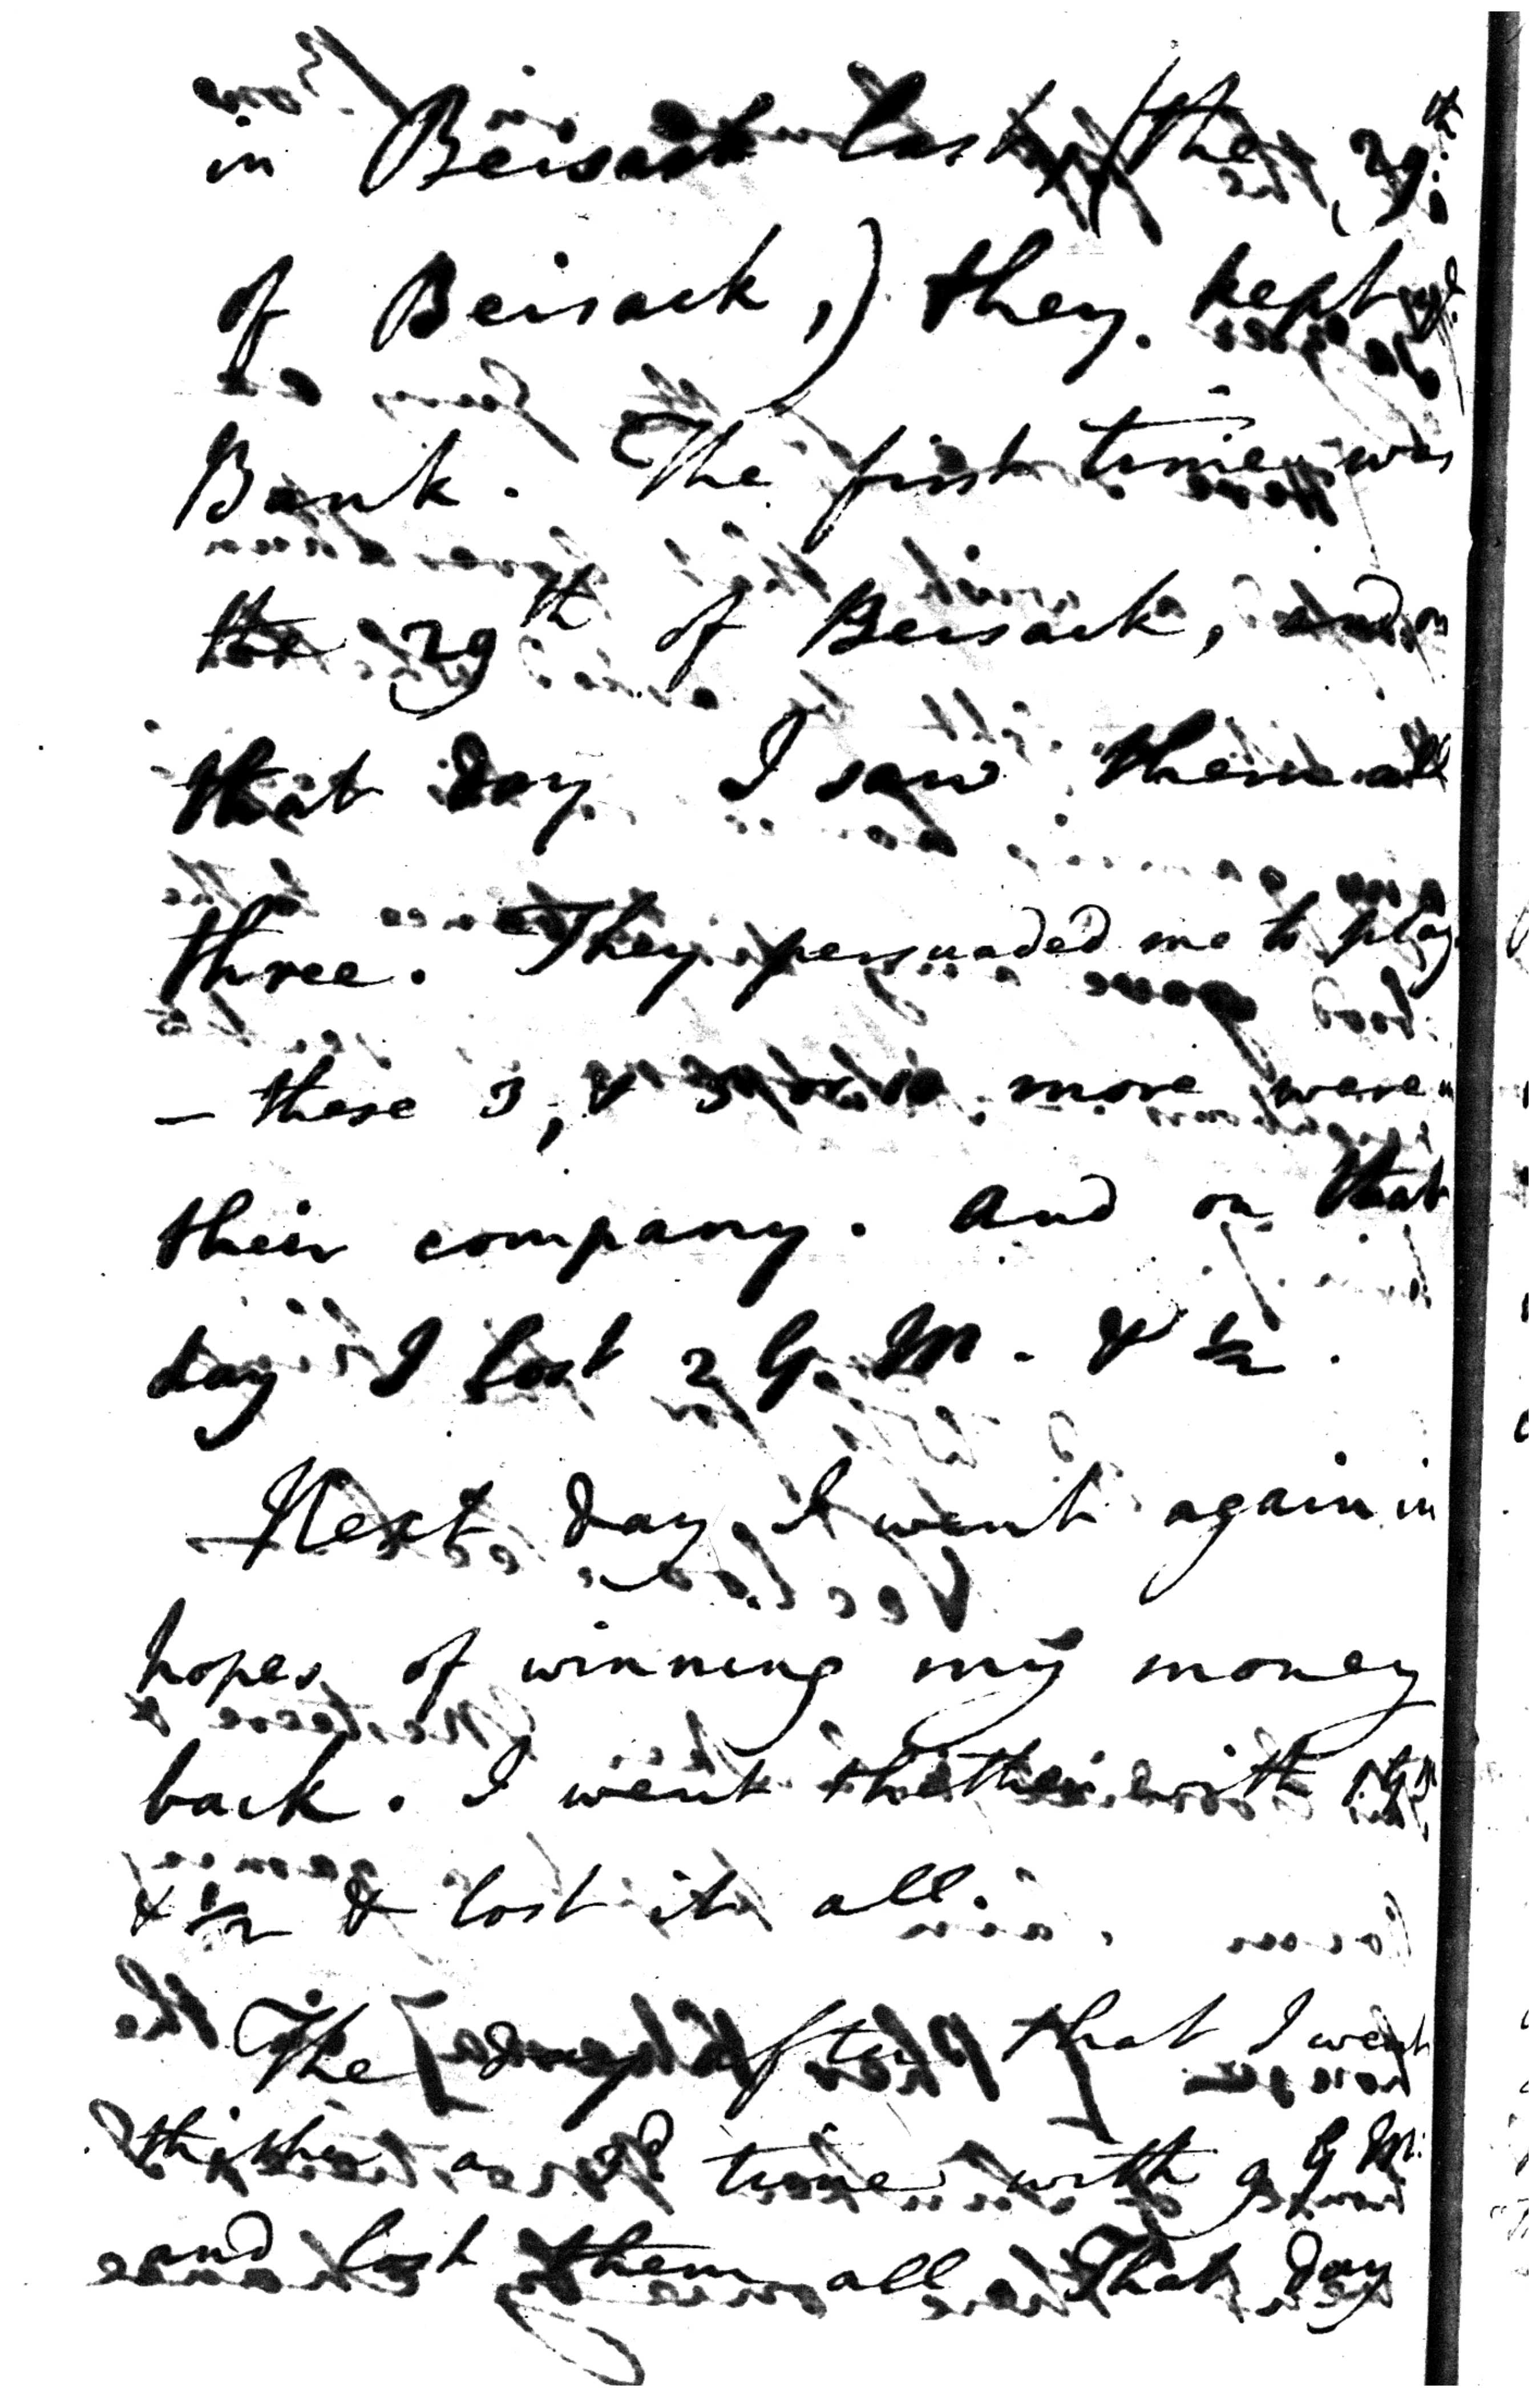 in Beisack last (the 29th
of Beisack,) they kept
Bank. The first time was
the 29th of Beisack, and on
that day I saw them all
three. They persuaded me to play
— these 3, & 3 more were in
their company. And on that
day I lost 2 G. M. & ½.
Next day I went again in
hopes of winning my money
back. I went thither with
& ½ & lost it all.
The day after that I went
thither a 3d time with 9 G M.
and lost them all. That day